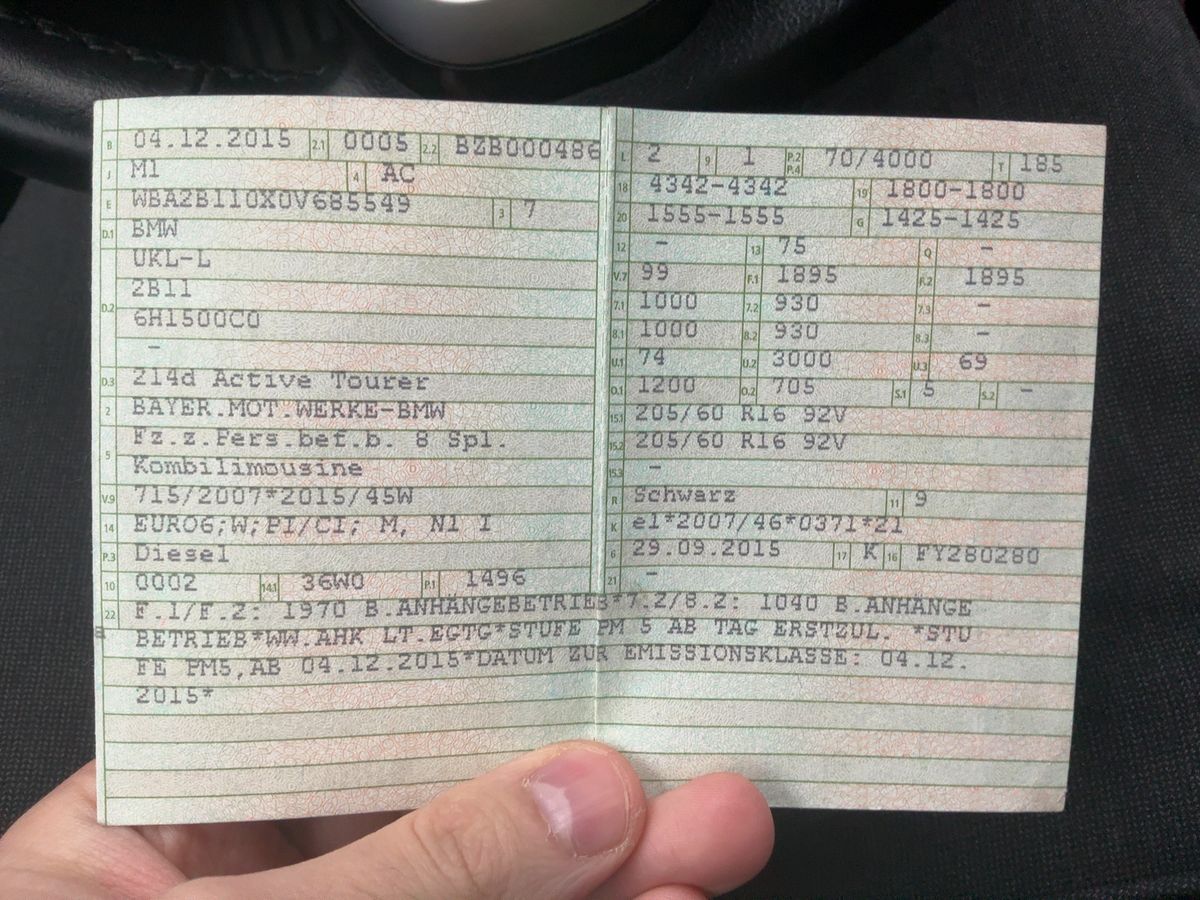 B 04.12.2015 2.1 0005 2.2 BZB000486
J M1 4 AC
E WBA2B110X0V685549 3 7
D.1 BMW
UKL-L
D.2 2B11
6H1500C0
-
D.3 214d Active Tourer
2 BAYER.MOT.WERKE-BMW
5 Fz.z.Pers.bef.b. 8 Spl.
Kombilimousine
V.9 715/2007*2015/45W
14 EURO6;W;PI/CI; M, N1 I
P.3 Diesel
10 0002 14.1 36W0 P.1 1496
L 2 9 1 P.2 P.4 70/4000 T 185
18 4342-4342 19 1800-1800
20 1555-1555 G 1425-1425
12 - 13 75 Q -
V.7 99 F.1 1895 F.2 1895
7.1 1000 7.2 930 7.3 -
8.1 1000 8.2 930 8.3 -
U.1 74 U.2 3000 U.3 69
O.1 1200 O.2 705 S.1 5 S.2 -
15.1 205/60 R16 92V
15.2 205/60 R16 92V
15.3 -
R Schwarz 11 9
K e1*2007/46*0371*21
6 29.09.2015 17 K 16 FY280280
21 -
22 F.1/F.2: 1970 B.ANHÄNGEBETRIEB*7.2/8.2: 1040 B.ANHÄNGE
BETRIEB*WW.AHK LT.EGTG*STUFE PM 5 AB TAG ERSTZUL. *STU
FE PM5,AB 04.12.2015*DATUM ZUR EMISSIONSKLASSE: 04.12.
2015*